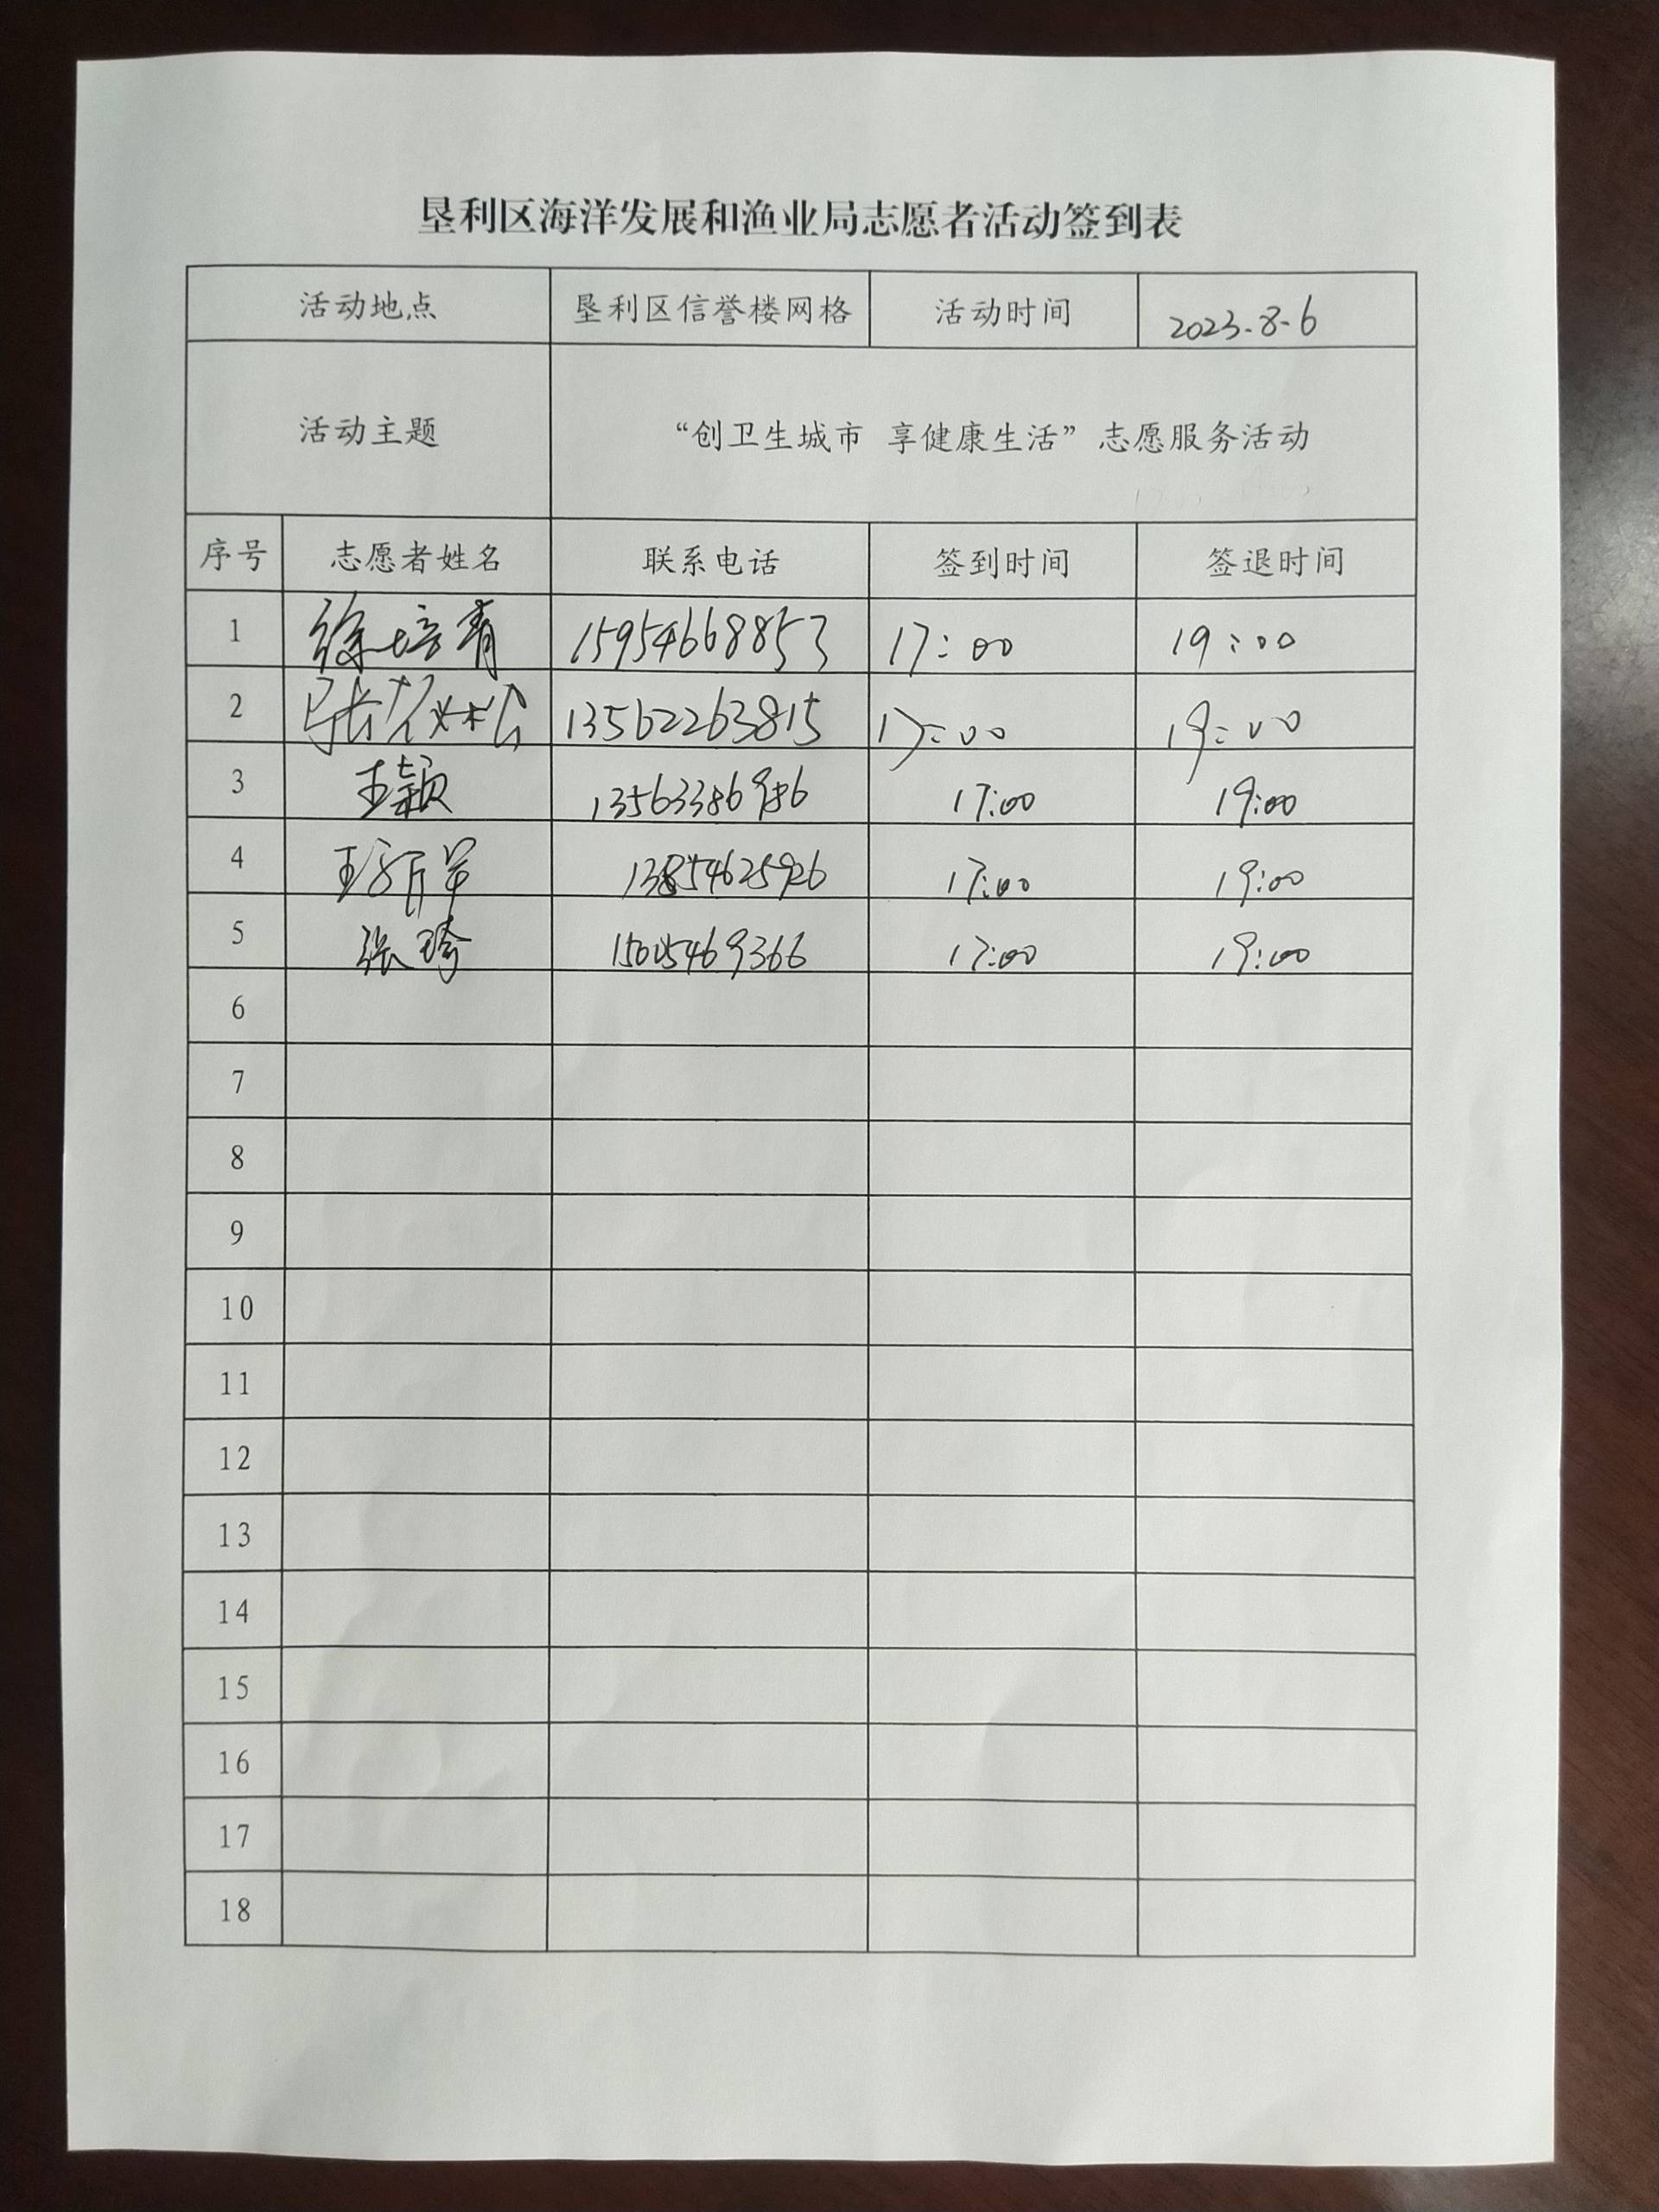 垦利区海洋发展和渔业局志愿者活动签到表
活动地点 垦利区信誉楼网格 活动时间 2023.8.6
活动主题 “创卫生城市 享健康生活”志愿服务活动
序号 志愿者姓名 联系电话 签到时间 签退时间
1 徐培青 15954668853 17:00 19:00
2 13562263815 17:00 19:00
3 王颖 13563386986 17:00 19:00
4 17:00 19:00
5 张琦 15605469366 17:00 19:00
6
7
8
9
10
11
12
13
14
15
16
17
18